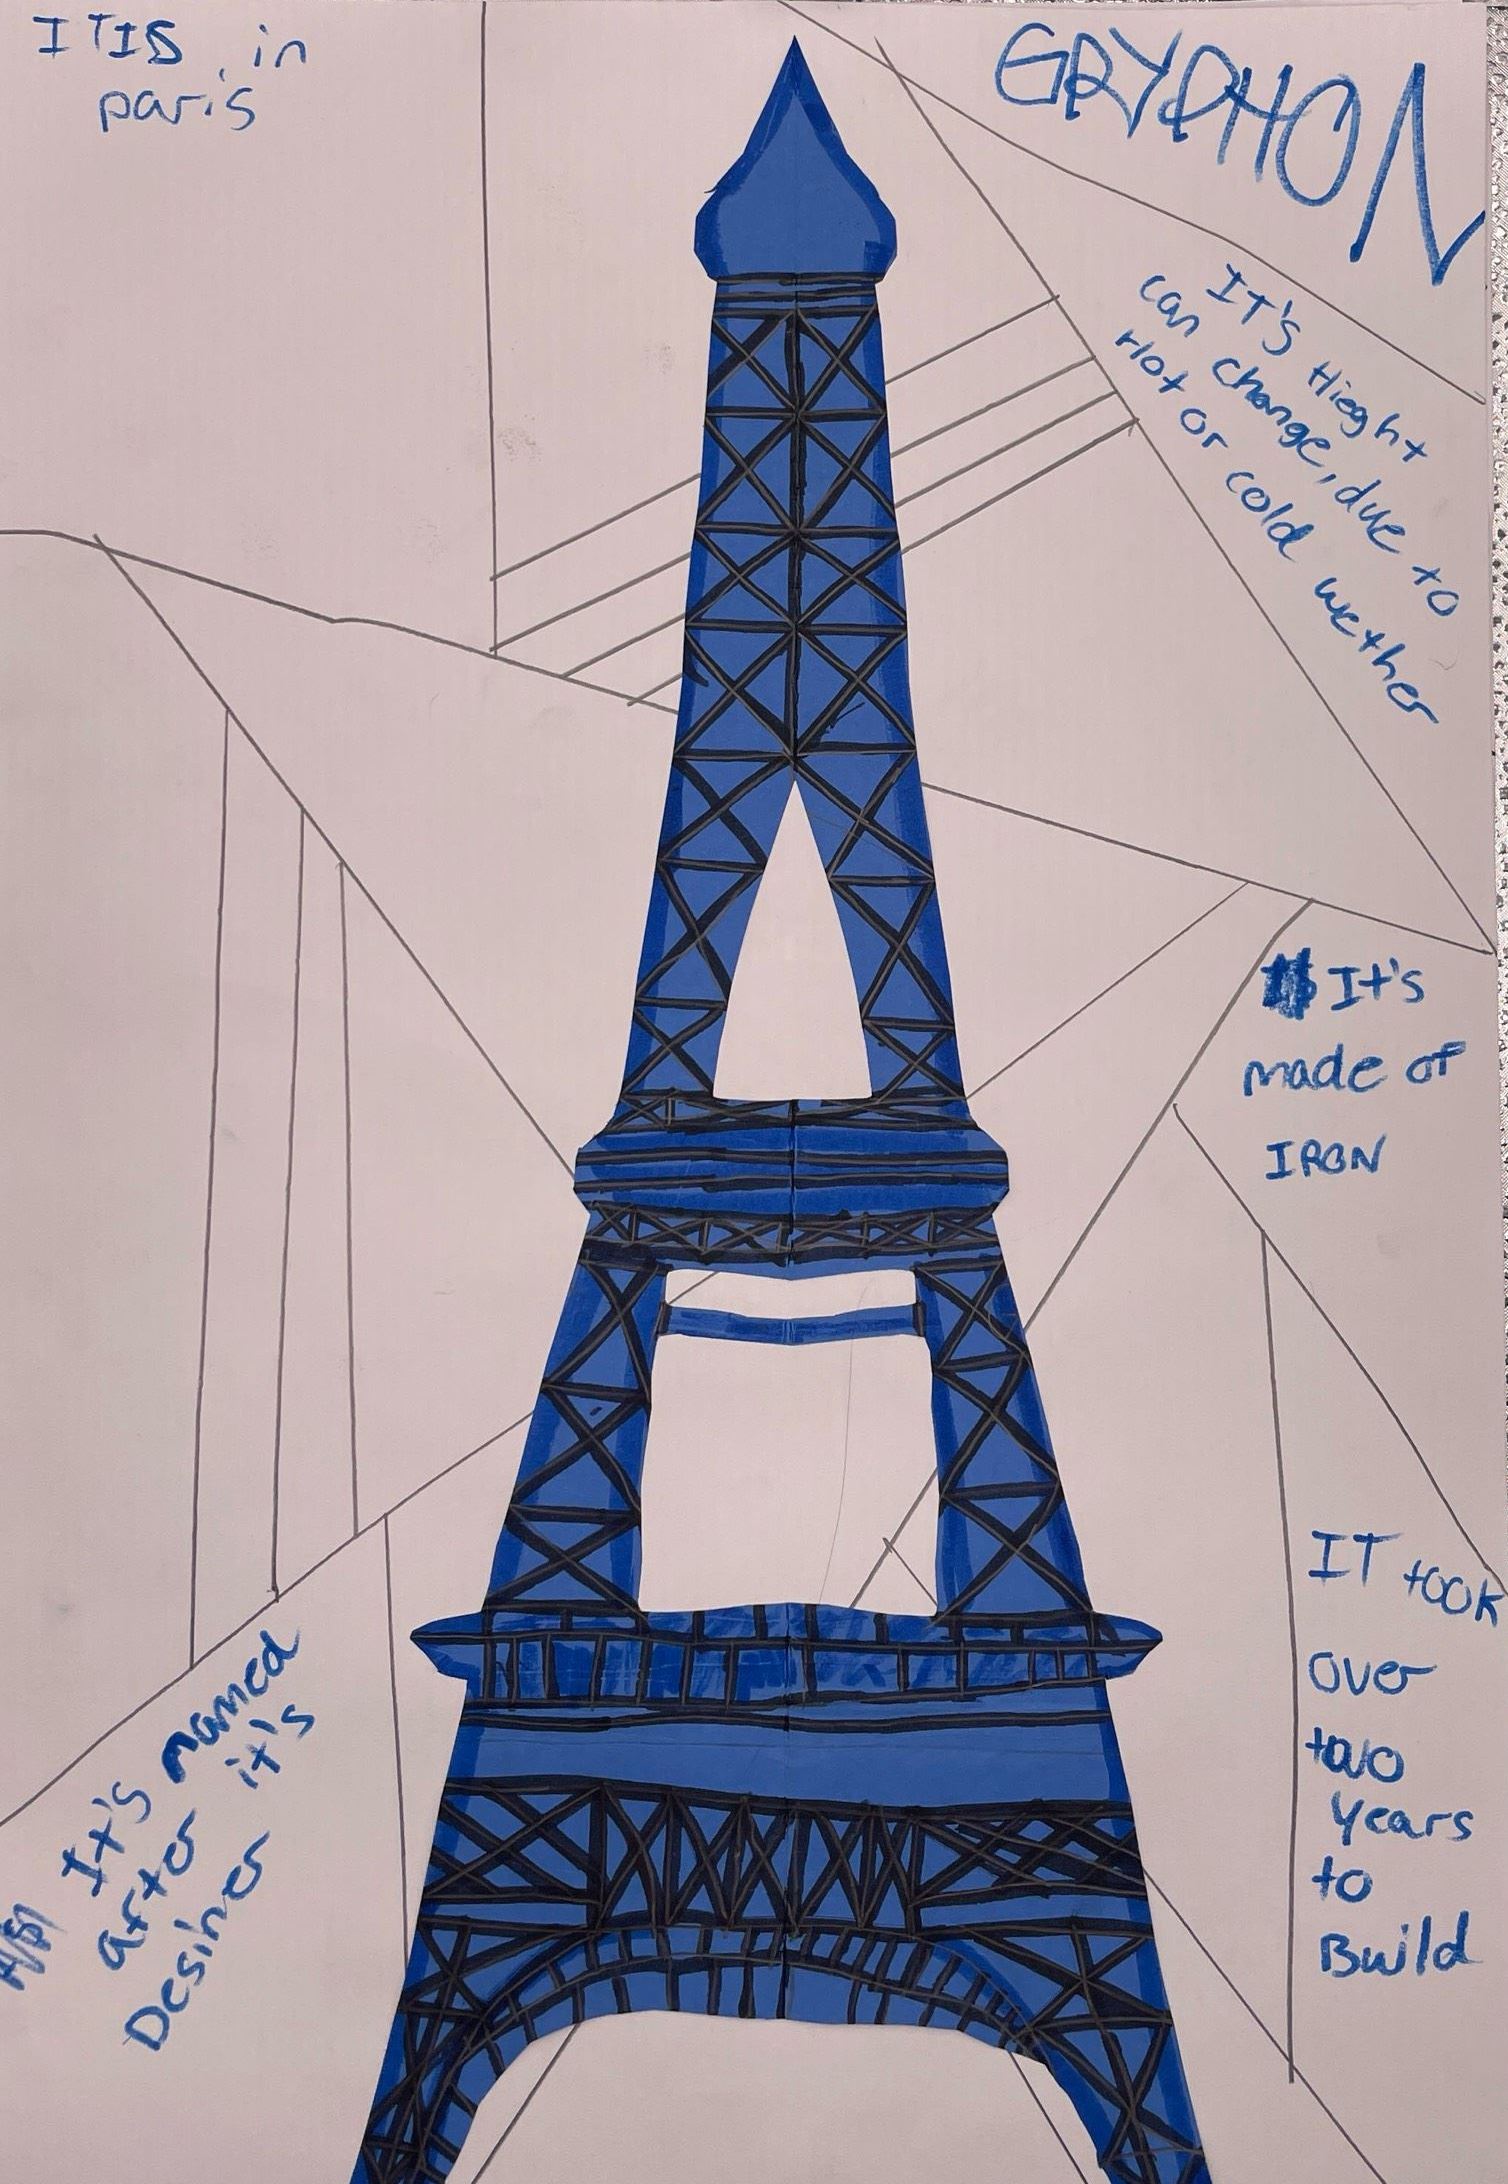 ITIS in
paris
GRYPHON
IT'S Hieght
can change, due to
Hot or cold wether
It's
made of
IRON
IT took
over
two
years
to
Build
It's named
after it's
Desiner